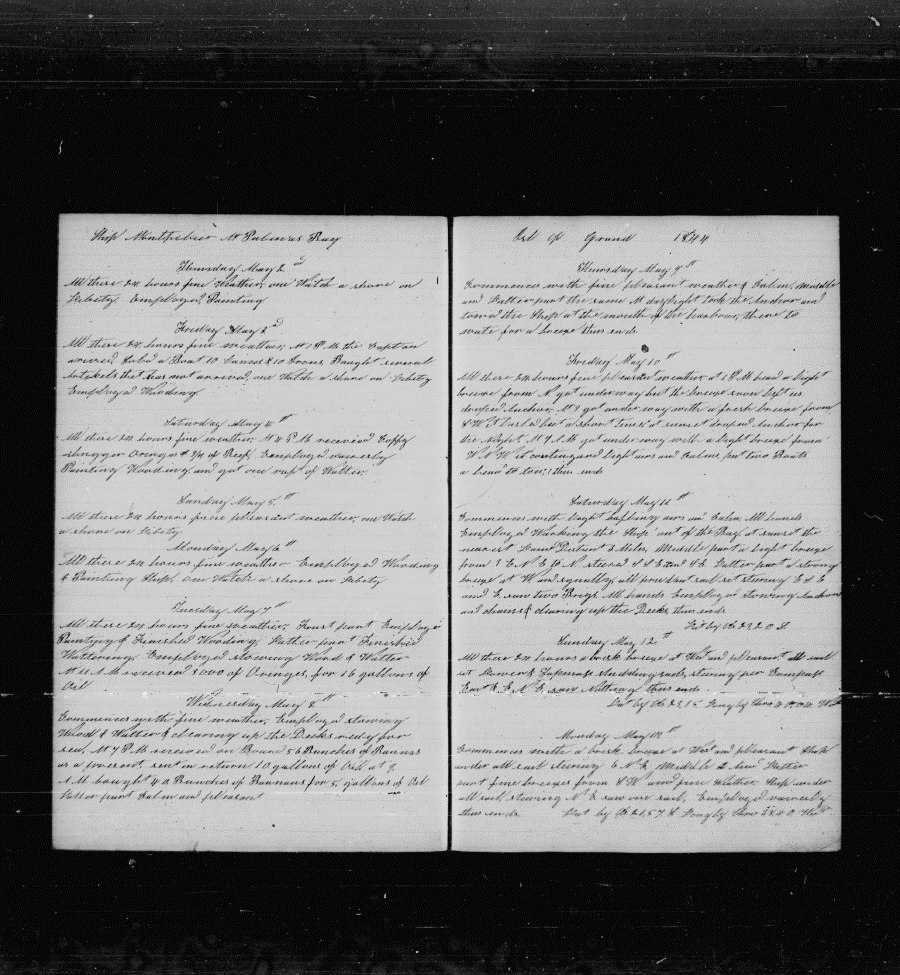 Ship Montpelier At Palmas Bay
Thursday May 2nd
All these 24 hours fine Weather, one Watch a shore on
Liberty Employed Painting
Friday May 3rd
All these 24 hours fine weather, At 1 P.M. the Captain
a Boat 10 & 10 Bought several
that has not arrived, one Watch a shore on Liberty
Employed Wooding
Saturday May 4th
All these 24 hours fine weather, At 4 P.M. received
Oranges & 3/4 of Beef, Employed variously
Painting Wooding and got one raft of Watter
Sunday May 5th
All these 24 hours fine pleasant weather, one Watch
a shore on Liberty
Monday May 6th
All these 24 hours fine weather Employed Wooding
& Painting Ship one Watch a shore on Liberty
Tuesday May 7th
All these 24 hours fine weather, First part Employed
Painting & Finished Wooding, Latter part Finished
Wattering, Employed stowing Wood & Watter
At 11 A.M. received 3000 of Oranges, for 18 gallons of
Oil
Wednesday May 8th
Commences with fine weather, Employed stowing
Wood & Watter & clearing up the Decks redy for
sea, At 7 P.M. received on Board 56 Bunches of Bananas
as a present, sent in return 10 gallons of Oil at 9
A.M. bought 40 Bunches of Bananas for 5 gallons of Oil
Latter part Calm and pleasant
1844
Thursday May 9th
Commences with fine pleasant weather & Calm, Middle
and Latter part the same At daylight took the Anchor and
towed the Ship at the mouth of the harbour, there to
wate for a breeze thus ends
Friday May 10th
All these 24 hours fine pleasant weather at 1 P.M. had a light
breeze from N got underway but the breeze soon left us
droped Anchor, At 4 got under way with a fresh breeze from
but a short time, at sunset droped Anchor for
the Night. At 9 A.M. got under way with a light breeze from
light airs and Calms, put two Boats
a head to tow, thus ends
Saturday May 11th
Commences with light baffling airs and Calm, All hands
Employed Working the Ship out of the Bay, at sunset the
nearest Land Distant 8 Miles, Middle part a light breeze
from Latter part a strong
breeze at W and squally, all prudent sail set steering
and E, saw two Brigs, All hands Employed stowing Anchors
and chains & clearing up the Decks, thus ends
Lat by Ob 23,20 S
Sunday May 12th
All these 24 hours a brisk breeze at West and pleasant All sail
set Lower & Topmast Studding sails, steering per Compass
East & saw Nothing thus ends
Lat by Ob 23,15 Long by Chro
Monday May 13th
Commences with a brisk breeze at West and pleasant Ship
under all sail steering Middle Latter
part fine breezes from and fine weather, Ship under
all sail, steering N E saw one sail, Employed variously
thus ends Lat by Ob 21,57 S Long by Chro 38,40 West